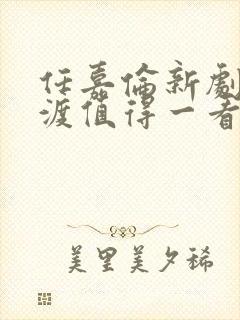 任嘉倫新劇
渡值得一看
美里美夕稀